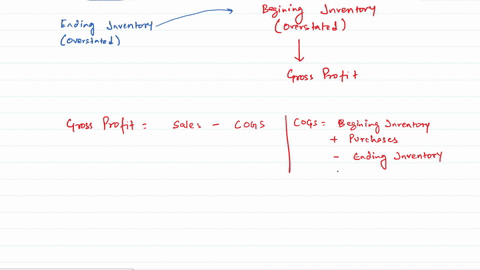 Begining Inventory
(overstated)
Ending Inventory
(overstated)
Gross Profit
Gross Profit = Sales - COGS
COGS = Begining Inventory
+ Purchases
- Ending Inventory